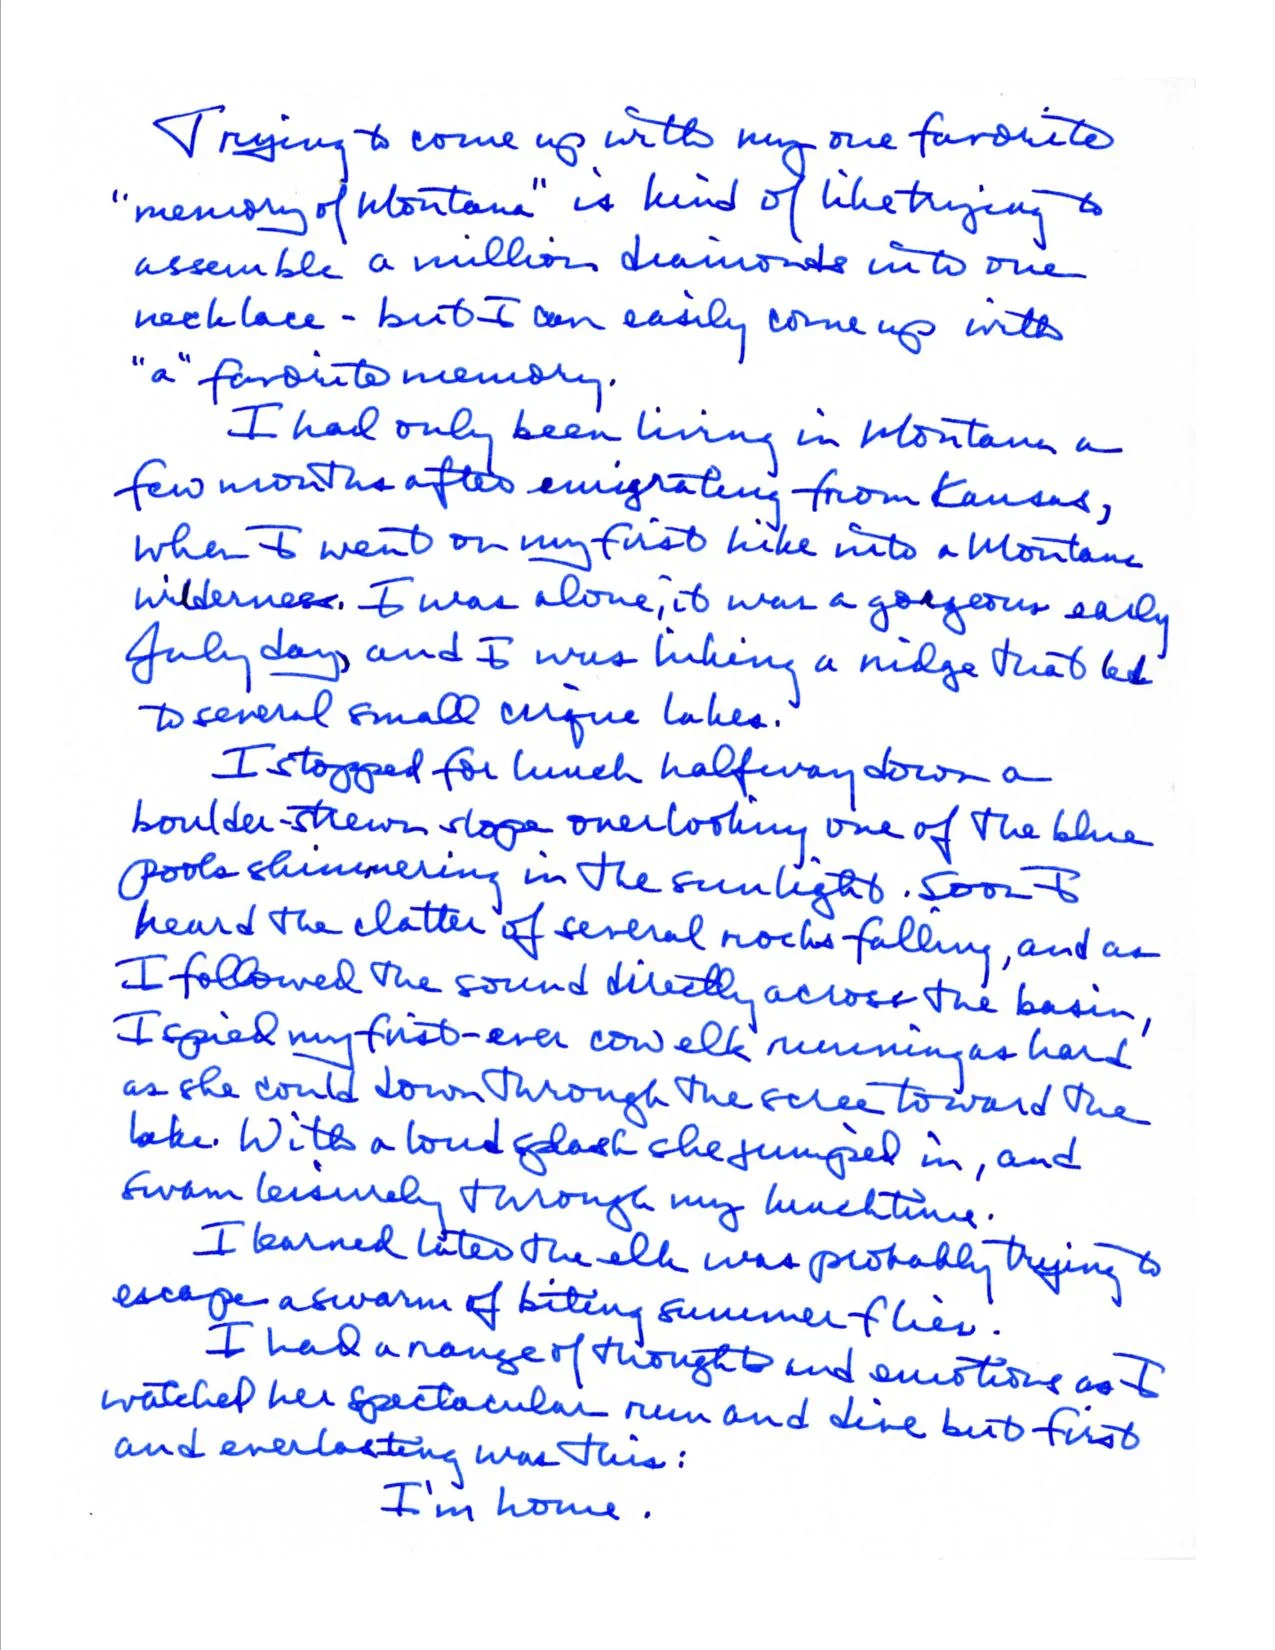 Trying to come up with my one favorite
"memory of Montana" is kind of like trying to
assemble a million diamonds into one
necklace - but I can easily come up with
"a" favorite memory.
I had only been living in Montana a
few months after emigrating from Kansas,
when I went on my first hike into a Montana
wilderness. I was alone, it was a gorgeous early
July day, and I was hiking a ridge that led
to several small cirque lakes.
I stopped for lunch halfway down a
boulder-strewn slope overlooking one of the blue
pools shimmering in the sunlight. Soon I
heard the clatter of several rocks falling, and as
I followed the sound directly across the basin,
I spied my first-ever cow elk running as hard
as she could down through the scree toward the
lake. With a loud splash she jumped in, and
swam leisurely through my lunchtime.
I learned later the elk was probably trying to
escape a swarm of biting summer flies.
I had a range of thoughts and emotions as I
watched her spectacular run and dive but first
and everlasting was this:
I'm home.